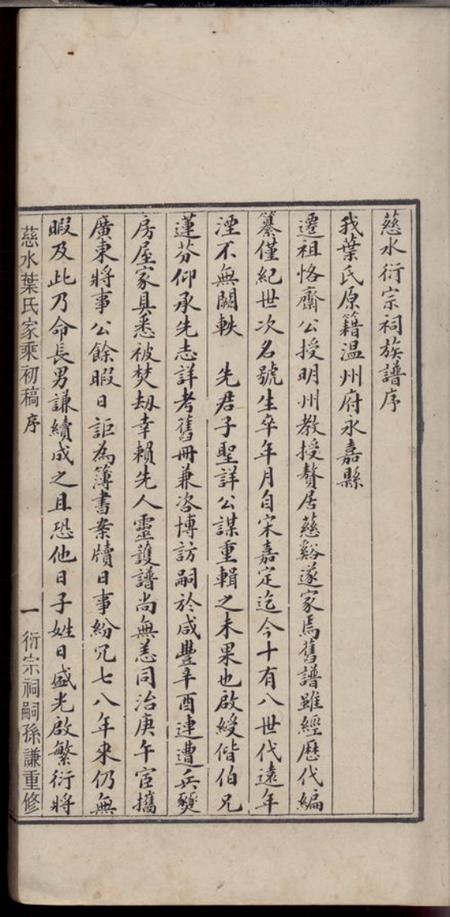 慈水衍宗祠族譜序
我葉氏原籍温州府永嘉縣
遷祖恪齋公授明州教授贅居慈谿遂家焉舊譜雖經歷代編
纂僅紀世次名號生卒年月自宋嘉定迄今十有八世代遠年
湮不無闕軼 先君子聖詳公謀重輯之未果也啟綬偕伯兄
蓮芬仰承先志詳考舊冊兼咨博訪嗣於咸豐辛酉連遭兵燹
房屋家具悉被焚劫幸賴先人靈護譜尚無恙同治庚午宦攜
廣東將事公餘暇日詎為簿書案牘日事紛冗七八年來仍無
暇及此乃命長男謙續成之且恐他日子姓日盛光啟繁衍將
慈水葉氏家乘初稿 序 一 衍宗祠嗣孫謙重修